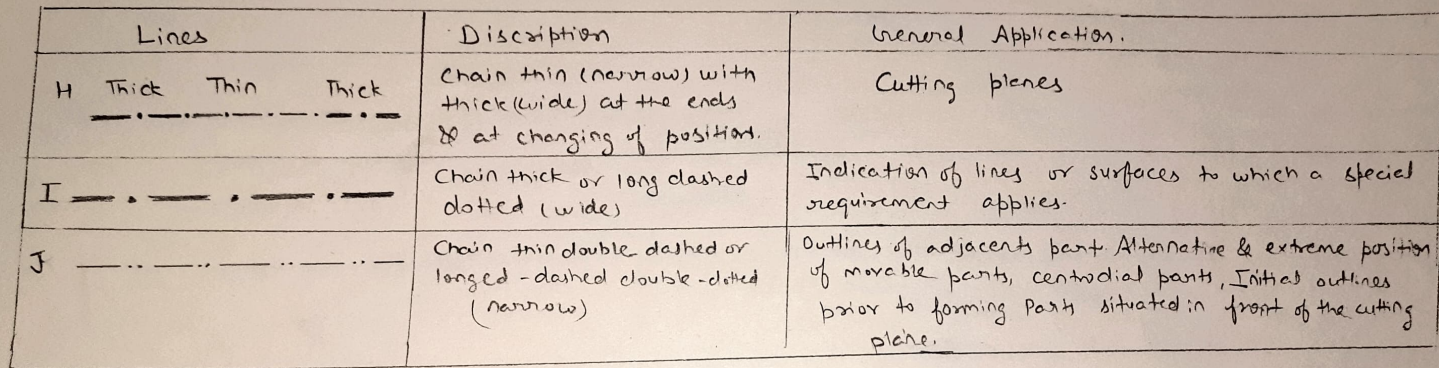 Lines Discription General Application.
H Thick Thin Thick
Chain thin (narrow) with
thick (wide) at the ends
& at changing of position.
Cutting planes
I
Chain thick or long dashed
dotted (wide)
Indication of lines or surfaces to which a special
requirement applies.
J
Chain thin double dashed or
longed-dashed double-dotted
(narrow)
Outlines of adjacents part. Alternative & extreme position
of movable parts, centrodial parts, Initial outlines
prior to forming Parts situated in front of the cutting
plane.